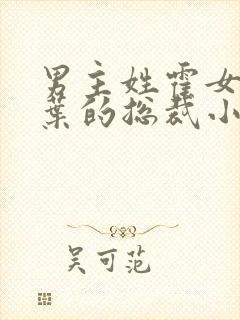 男主姓霍女
葉的总裁小
吴可范